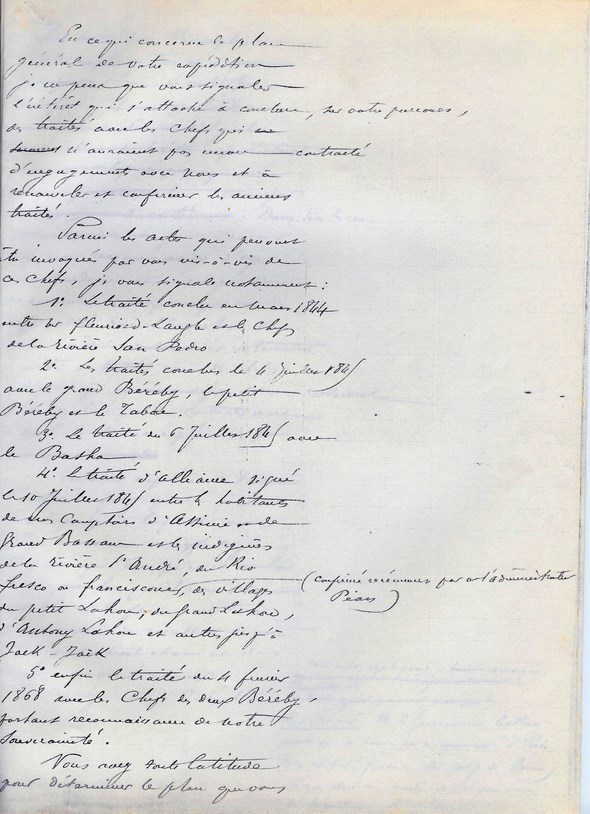 En ce qui concerne le plan
général de votre expédition
je ne peux que vous signaler
l'intérêt qui s'attache à conclure, sur votre parcours,
des traités avec les Chefs qui
n'auraient pas encore contracté
d'engagements avec nous et à
renouveler et confirmer les anciens
traités.
Parmi les actes qui peuvent
être invoqués par vous vis-à-vis de
ces Chefs, je vous signale notamment :
1º Le traité conclu en mars 1844
entre Mr Fleuriot de Langle et les Chefs
de la rivière San Pedro
2º Les traités conclus le 4 Juillet 1845
avec le grand Béréby, le petit
Béréby et le Tabou.
3º Le traité du 6 Juillet 1845 avec
le Basha
4º Le traité d'alliance signé
le 10 Juillet 1845 entre les habitants
de nos Comptoirs d'Assinie et de
Grand Bassam et les indigènes
de la rivière St André, du Rio
Fresco ou franciscour, des villages (confirmé récemment par M. l'administrateur
Péan)
du petit Lahou, du Grand Lahou,
d'Antony Lahou et autres jusqu'à
Jack-Jack
5º enfin le traité du 4 février
1868 avec les Chefs des deux Béréby,
portant reconnaissance de notre
Souveraineté.
Vous avez toute latitude
pour déterminer le plan que vous